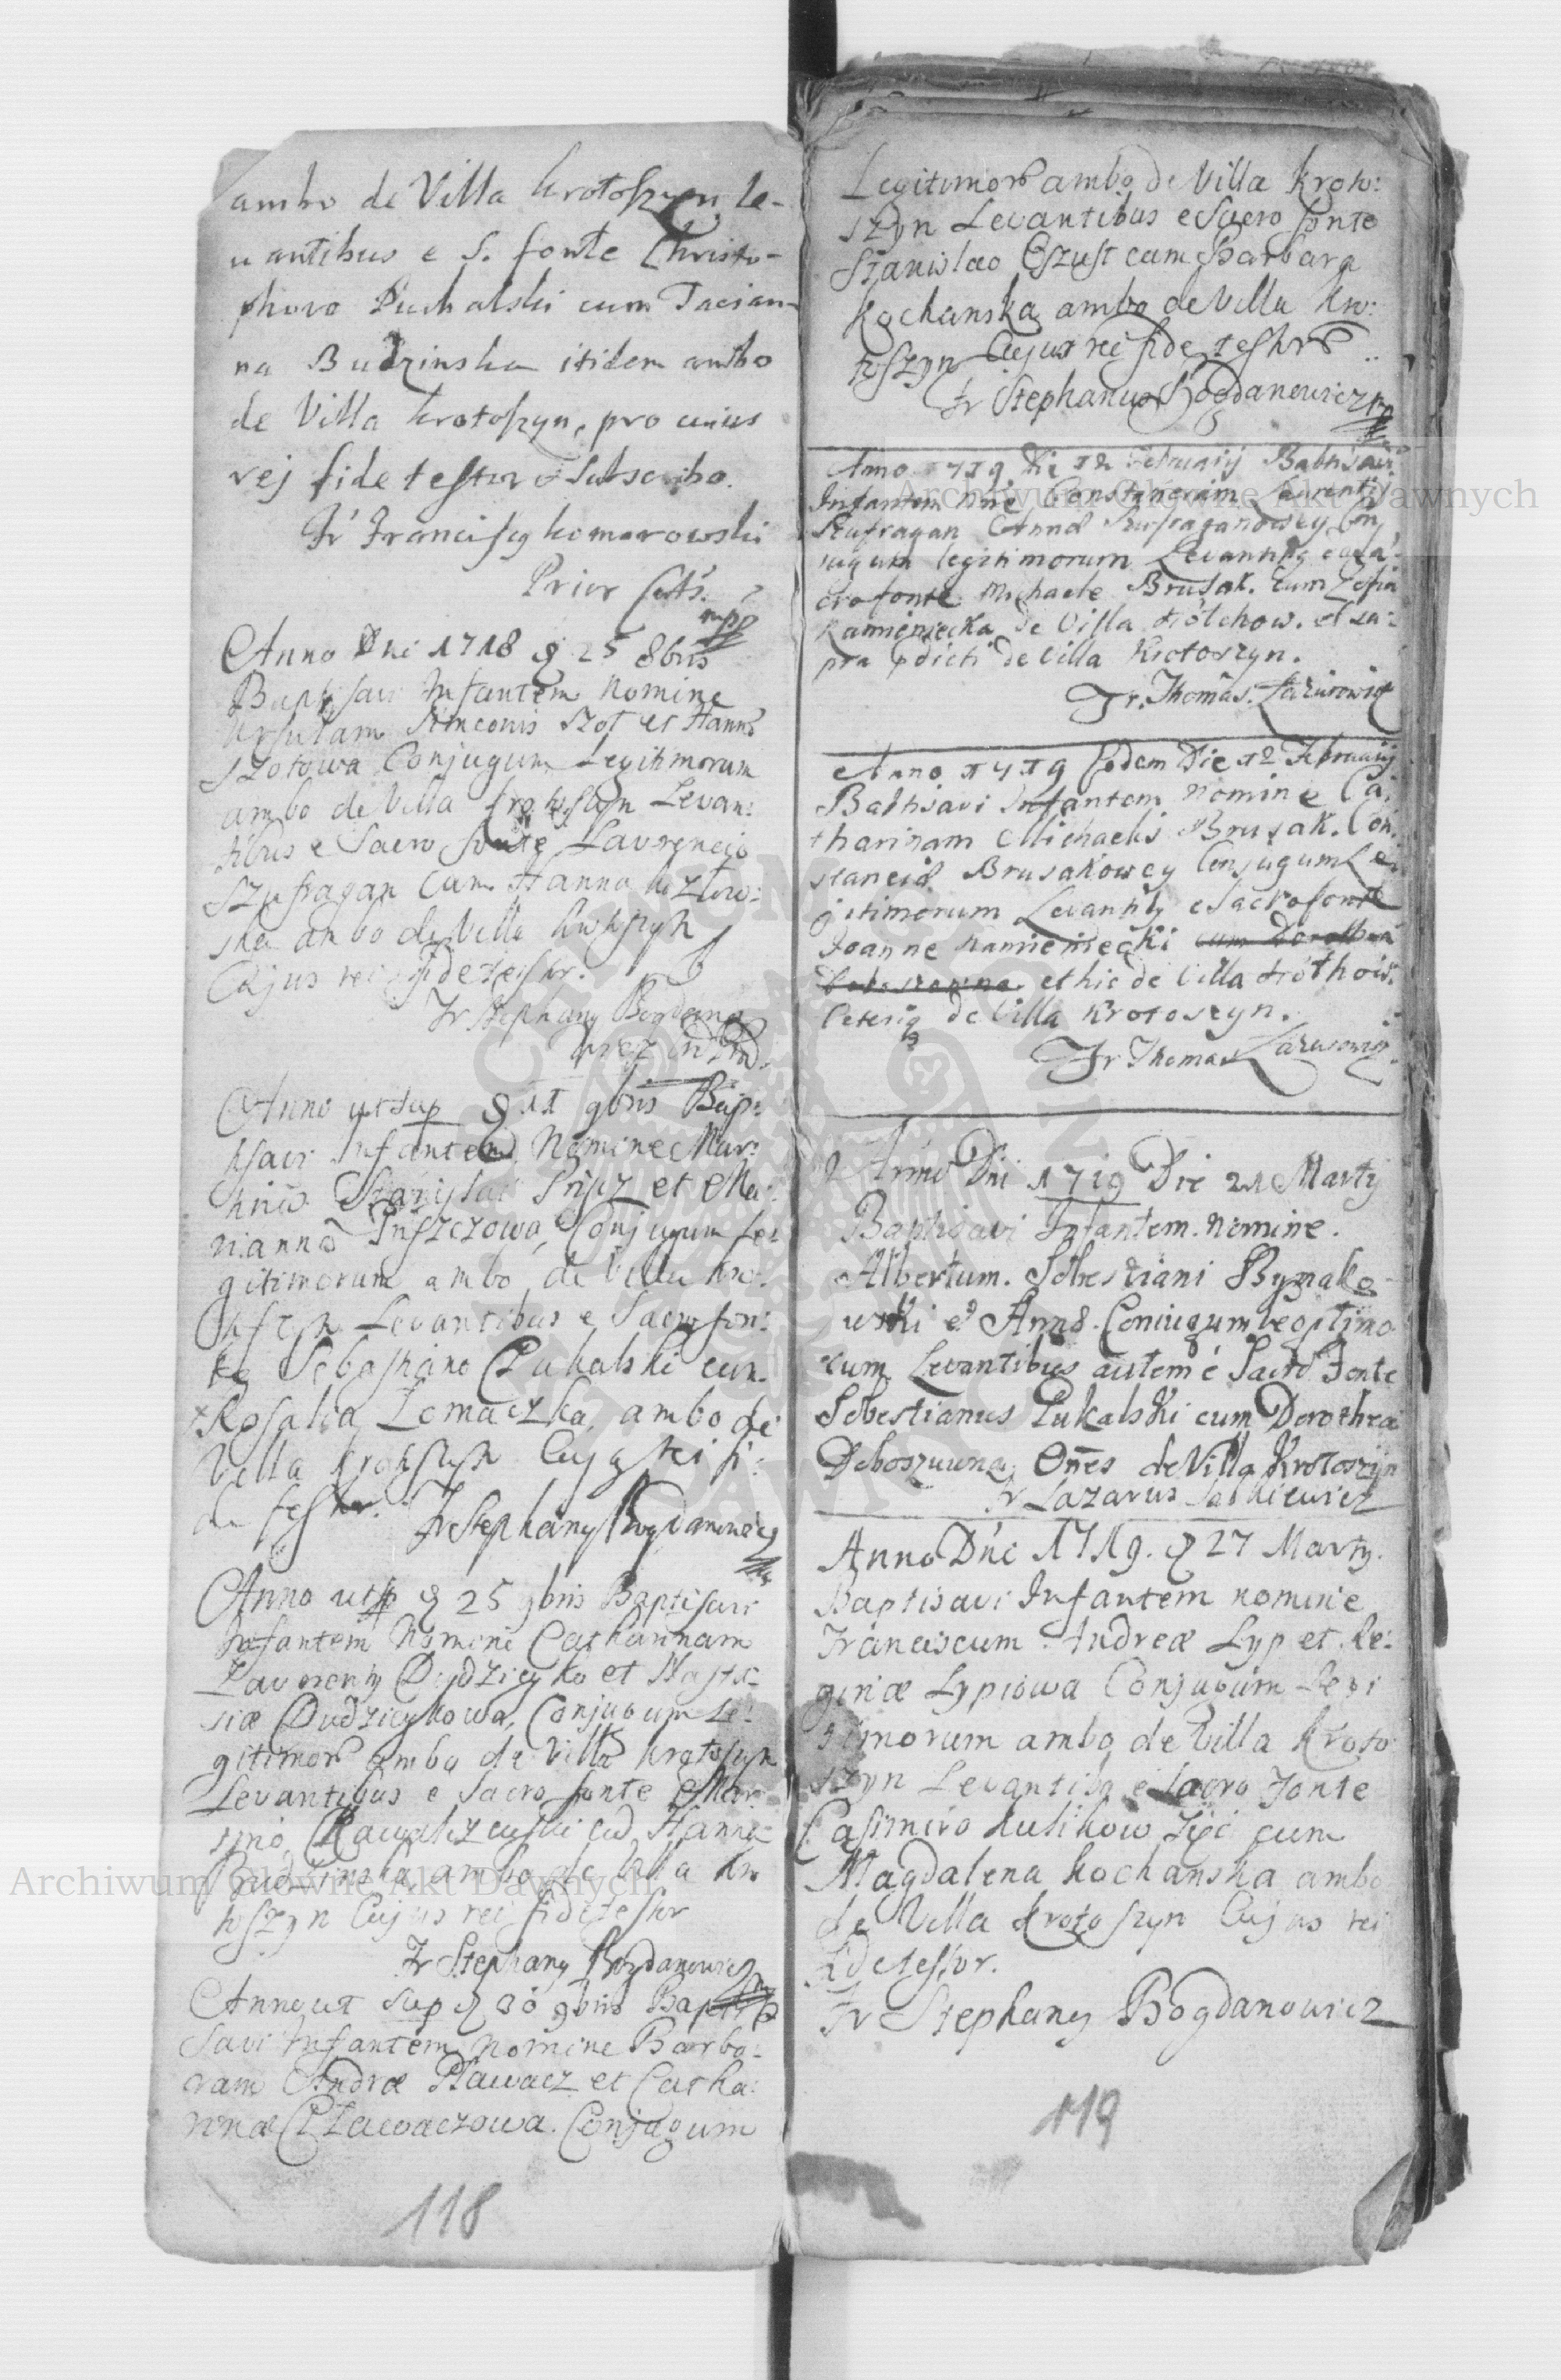 ambo de Villa krotoszyn, le-
uantibus e S. fonte Christo-
phoro Puchalski cum Tacian-
na Budzinska itidem ambo
de Villa krotoszyn, pro cuius
rej fide testor et subscribo.
Fr Franciscq komorowski
Prior
mpp
Anno Dni 1718 25 8bris
Baptisavi Infantem Nomine
Ursulam Simeonis Szot et Hannæ
Szotowa Conjugum Legitimorum
ambo de Villa krotoszyn Levan:
tibus e Sacro fonte Laurencio
Szufragan cum Hanna kozłow:
ska ambo de Villa krotoszyn
Cujus rei fide testor.
Fr Stephanq Bogdano
wicz
Anno ut sup 11 9bris Bap:
tisavi Infantem Nomine Mar:
Stanislai et Ma:
riannæ Conjugum Le:
gitimorum ambo de Villa kro:
toszyn Levantibus e Sacro fon:
te Sebastiano Lukalski cum
Rosalia Lomaczka, ambo de
Villa krotoszyn Cujq rei fi:
de testor. Fr Stephanq Bogdanowicz
Anno ut sup 25 9bris Baptisavi
Infantem Nomine Catharinam
Laurenty Dudzicyko et Nasta:
siæ Dudzicykowa, Conjugum Le:
gitimor ambo de Villa krotoszyn
Levantibus e Sacro fonte Mar
tino, cum Hanna
Budzinska ambo de Villa kro
toszyn Cujus rei fide testor
Fr Stephanq Bogdanowicz
Anno ut sup 30 9bris Bapti
savi Infantem Nomine Barba:
ram Andræ Pławacz et Catha:
rinæ Pławaczowa. Conjugum
118
Legitimor ambo de Villa kroto:
szyn Levantibus e Sacro fonte
Stanislao Eszust cum Barbara
Kochanska ambo de Villa kro:
toszyn Cujus rei fide testor
Fr Stephanus Bogdanowicz
Anno 1719 Die 12 Februarij Babtisavi
Infantem nne Constanciam Laurentij
Szufragan Annæ Szufraganowey Con
jugum legitimorum Levantibq e sa:
cro fonte Michaele Brusak. Cum Zofia
Kamieniecka de Villa Hołthow. et su:
pra pdicti de Villa Krotoszyn.
Fr. Thomas. Łazurowicz
Anno 1719 Eodem Die 12 Februarij
Babtisavi Infantem Nomine Ca:
tharinam Michaelis Brusak. Con:
stanciæ Brusakowey Conjugum Le
gitimorum Levantibq e Sacro fonte
Joanne Kamieniecki cum Dorothea
et hic de Villa Hołthow.
Ceteriq de Villa Krotoszyn.
Fr Thomas Łazurowicz
Anno Dni 1719 Die 21 Martij
Baptisavi Infantem. nomine.
Albertum. Sebestiani Rymako
wski et Annæ. Coniugum legitimo
rum Levantibus autem é Sacro Fonte
Sebestianus Lukalski cum Dorothea
Deboszuwna, Ones de Villa Krotoszyn
Fr Lazarus Saskiewicz
Anno Dni 1719. 27 Martij.
Baptisavi Infantem nomine
Franciscum. Andreæ Lyp et Re:
ginæ Lypiowa Conjugum Legi
timorum ambo de Villa kroto
szyn Levantibq e Sacro Fonte
Casimiro kulikow Zięć cum
Magdalena kochanska ambo
de Villa krotoszyn Cujus rei
fide testor.
Fr Stephanq Bogdanowicz
119
Archiwum Główne Akt Dawnych
Archiwum Główne Akt Dawnych